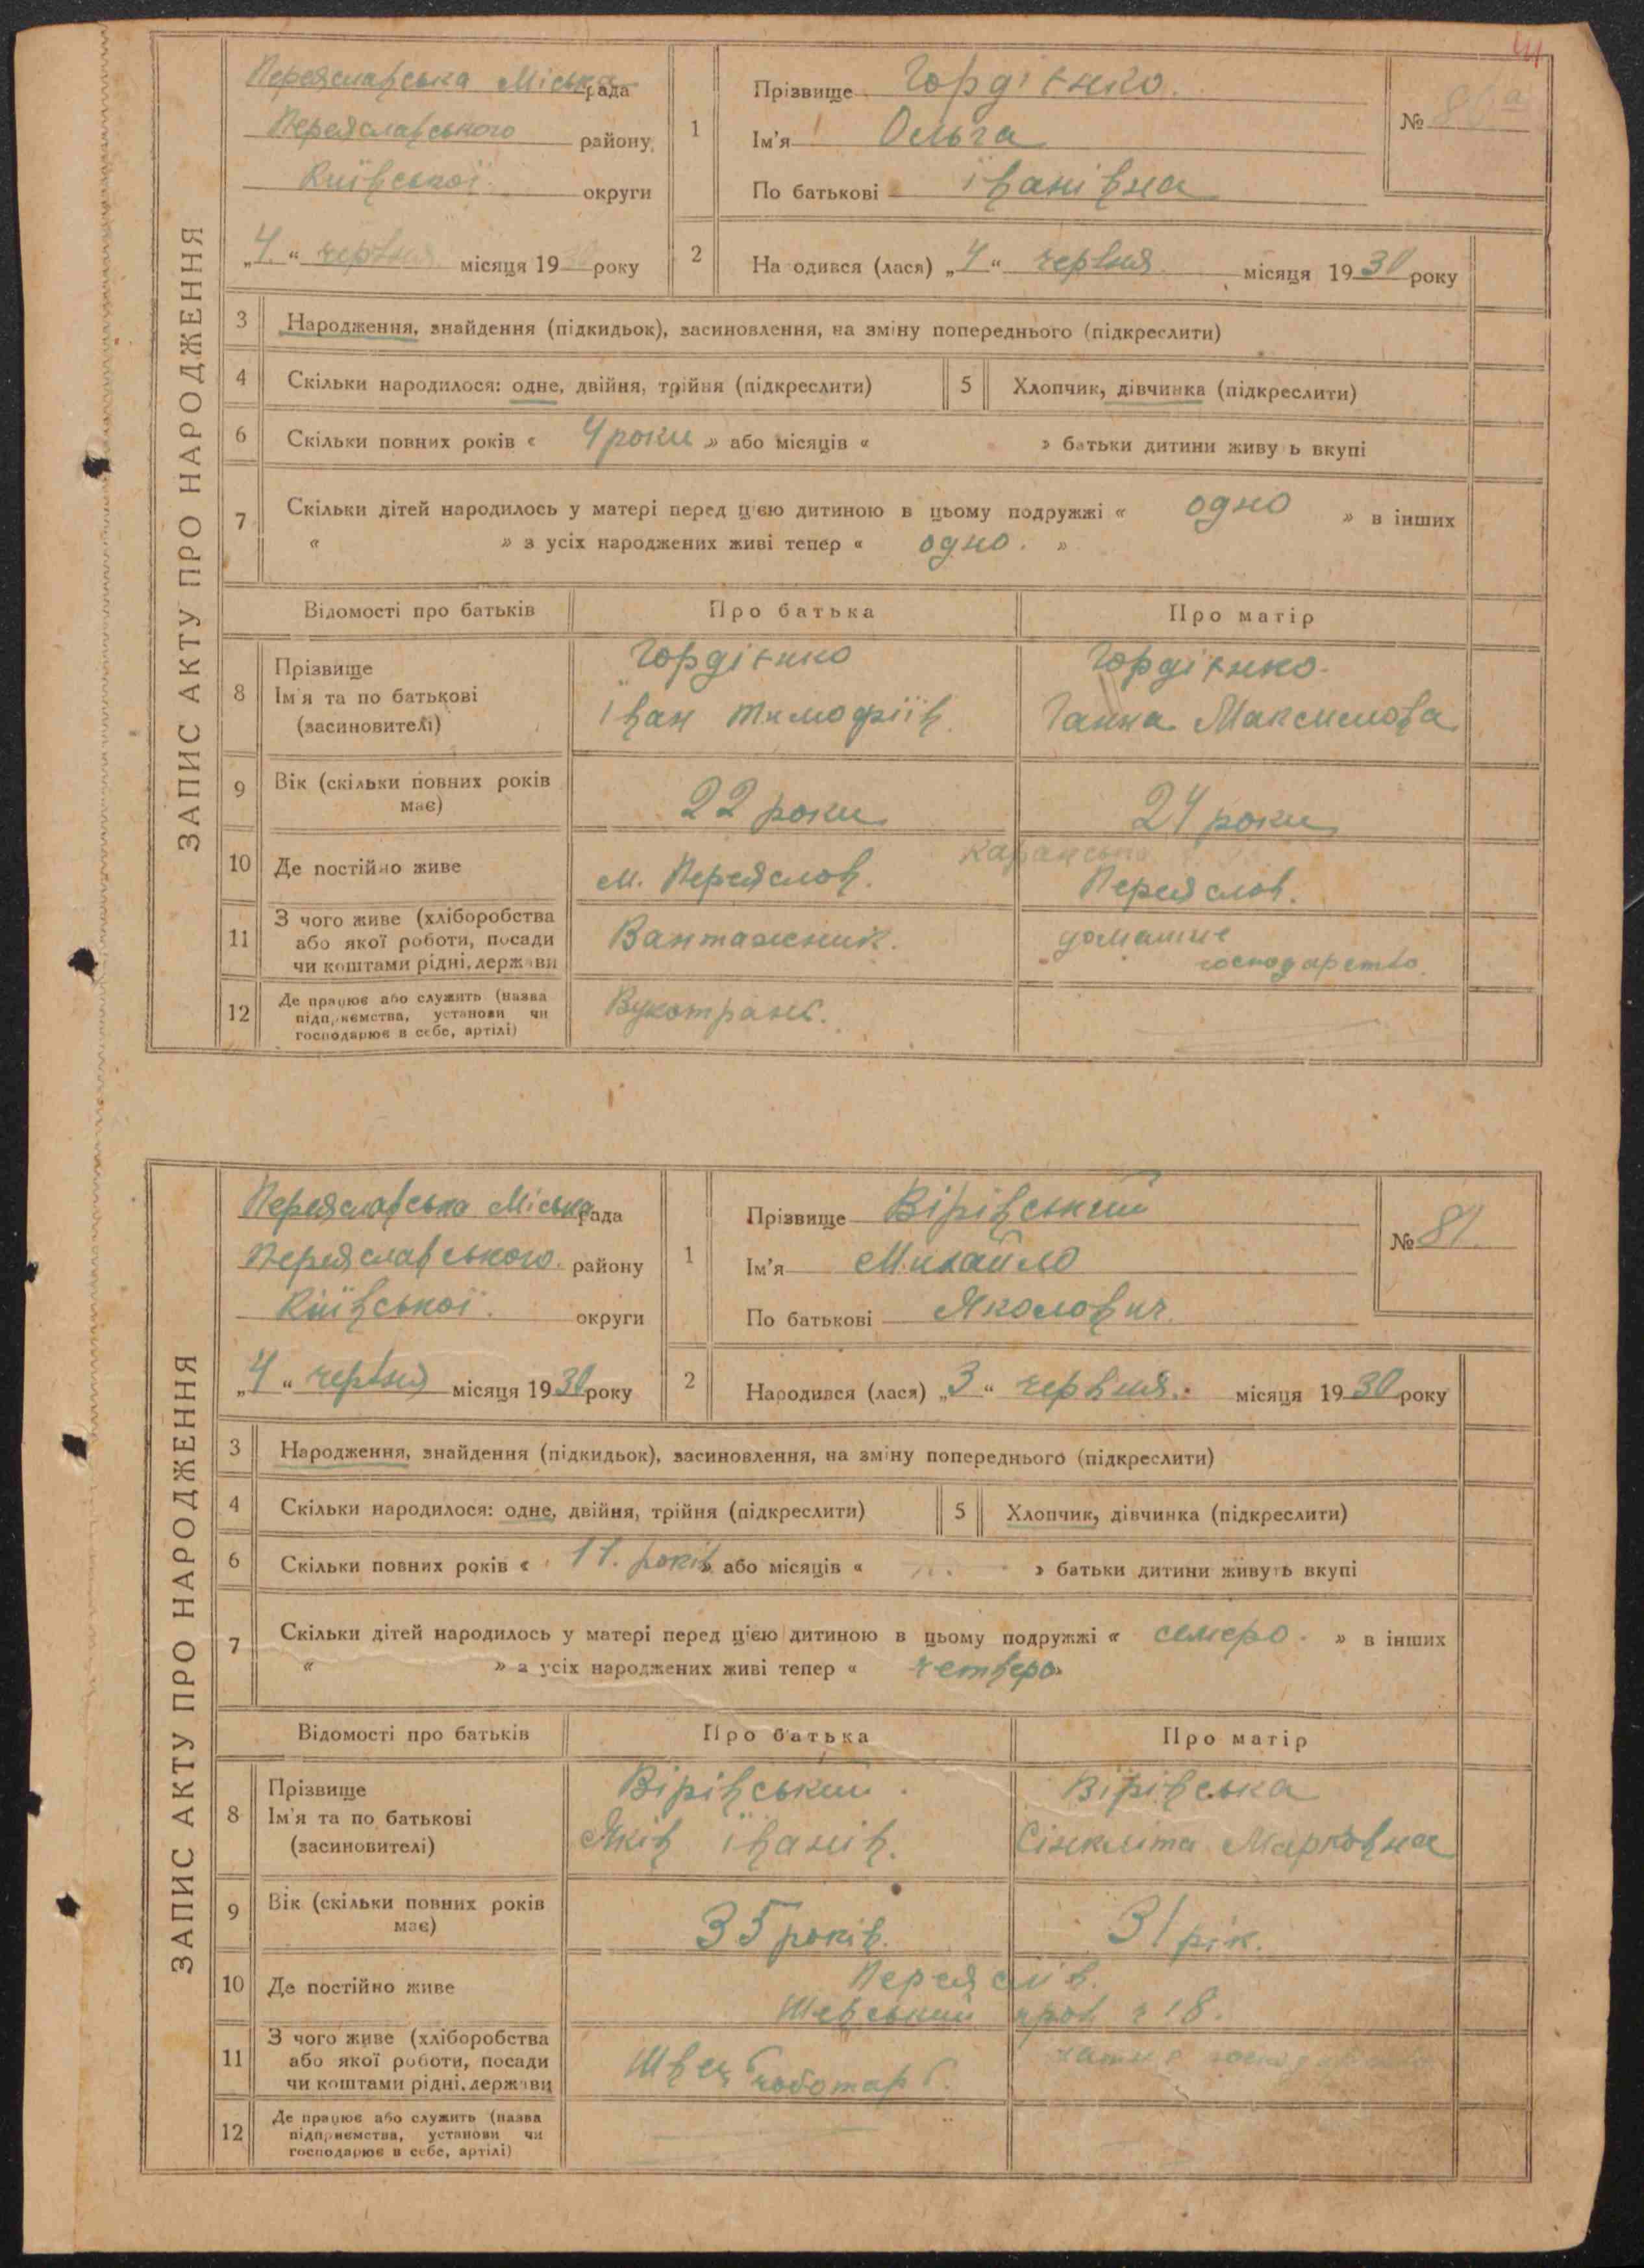 ЗАПИС АКТУ ПРО НАРОДЖЕННЯ
Переяславська Міська рада
Переяславського району
Київської округи
„4“ червня місяця 1930 року
1
Прізвище Гордієнко.
Ім'я Ольга
По батькові Іванівна
№ 80а
2
На одився (лася) „4“ червня місяця 1930 року
3 Народження, знайдення (підкидьок), засиновлення, на зміну попереднього (підкреслити)
4 Скільки народилося: одне, двійня, трійня (підкреслити) 5 Хлопчик, дівчинка (підкреслити)
6 Скільки повних років « 4 роки » або місяців « » батьки дитини живу ь вкупі
7 Скільки дітей народилось у матері перед цією дитиною в цьому подружжі « одно » в інших
« » з усіх народжених живі тепер « одно. »
Відомості про батьків Про батька Про матір
8 Прізвище
Ім'я та по батькові
(засиновителі)
Гордієнко
Іван Тимофіїв.
Гордієнко.
Ганна Максимова
9 Вік (скільки повних років
має)
22 роки
24 роки
10 Де постійно живе
м. Переяслов.
Каранська
Переяслов.
11 З чого живе (хліборобства
або якої роботи, посади
чи коштами рідні, держави
Вантажник.
домашнє
господарство
12 Де працює або служить (назва
підприємства, установи чи
господарює в себе, артілі)
Вукотранс.
ЗАПИС АКТУ ПРО НАРОДЖЕННЯ
Переяславська Міська рада
Переяславського району
Київської округи
„4“ червня місяця 1930 року
1
Прізвище Вірівський
Ім'я Михайло
По батькові Яколович.
№ 81.
2
Народився (лася) „3“ червня. місяця 1930 року
3 Народження, знайдення (підкидьок), засиновлення, на зміну попереднього (підкреслити)
4 Скільки народилося: одне, двійня, трійня (підкреслити) 5 Хлопчик, дівчинка (підкреслити)
6 Скільки повних років « 11. років » або місяців « » батьки дитини живуть вкупі
7 Скільки дітей народилось у матері перед цією дитиною в цьому подружжі « семеро. » в інших
« » з усіх народжених живі тепер « четверо »
Відомості про батьків Про батька Про матір
8 Прізвище
Ім'я та по батькові
(засиновителі)
Вірівський.
Яків Іванів.
Вірівська
Сінкліта Марковна
9 Вік (скільки повних років
має)
35 років.
31 рік.
10 Де постійно живе
Переяслів.
Шевський пров 18.
11 З чого живе (хліборобства
або якої роботи, посади
чи коштами рідні, держави
Швець чоботар
12 Де працює або служить (назва
підприємства, установи чи
господарює в себе, артілі)